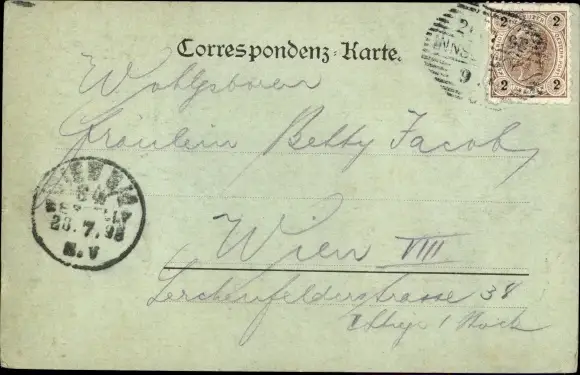 Correspondenz-Karte.
2 2
2 2
INNS
9
Wohlgeboren
Fräulein Betty Jacob
Wien VIII
Lerchenfelderstrasse 38
1 Stock
WIEN
BESTELLT
28.7.98
N.V